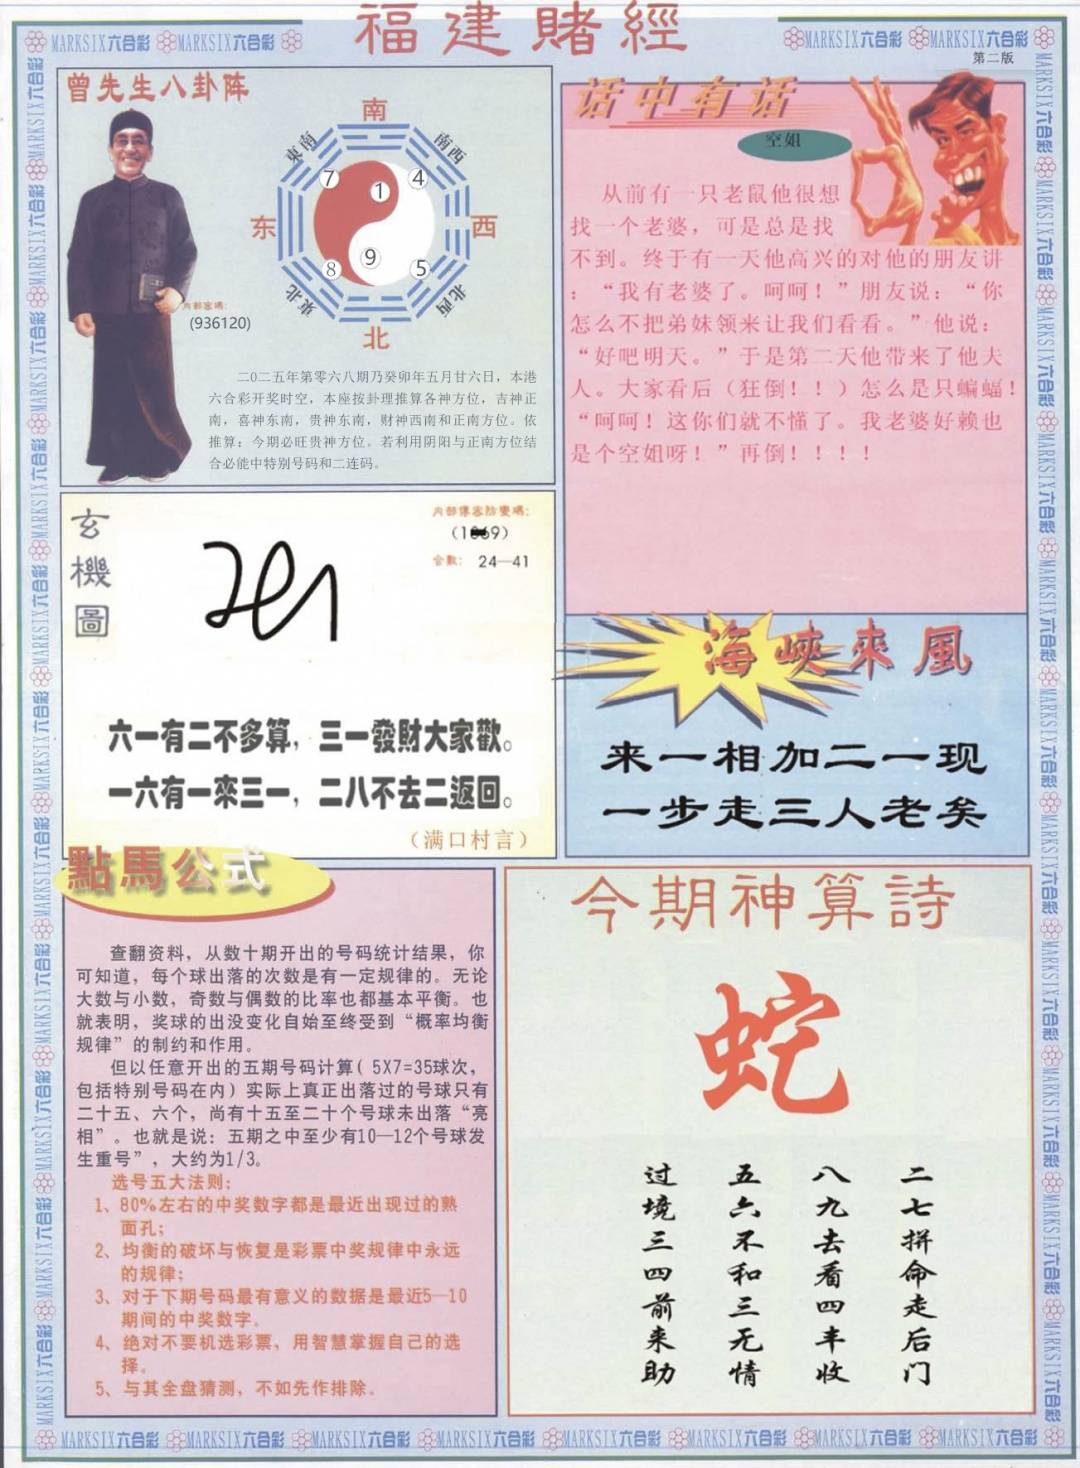 福建賭經
MARKSIX六合彩 MARKSIX六合彩
MARKSIX六合彩 MARKSIX六合彩
第二版
曾先生八卦阵
南
東南
南西
7
1
4
东
西
8
9
5
東北
北西
北
内部密碼:
(936120)
二0二五年第零六八期乃癸卯年五月廿六日，本港
六合彩开奖时空，本座按卦理推算各神方位，吉神正
南，喜神东南，贵神东南，财神西南和正南方位。依
推算：今期必旺贵神方位。若利用阴阳与正南方位结
合必能中特别号码和二连码。
话中有话
空姐
从前有一只老鼠他很想
找一个老婆，可是总是找
不到。终于有一天他高兴的对他的朋友讲
：“我有老婆了。呵呵！”朋友说：“你
怎么不把弟妹领来让我们看看。”他说：
“好吧明天。”于是第二天他带来了他夫
人。大家看后（狂倒！！）怎么是只蝙蝠！
“呵呵！这你们就不懂了。我老婆好赖也
是个空姐呀！”再倒！！！！
玄機圖
内部傳密防變碼:
合數: 24—41
六一有二不多算，三一發財大家歡。
一六有一來三一，二八不去二返回。
（满口村言）
海峽來風
来一相加二一现
一步走三人老矣
點馬公式
查翻资料，从数十期开出的号码统计结果，你
可知道，每个球出落的次数是有一定规律的。无论
大数与小数，奇数与偶数的比率也都基本平衡。也
就表明，奖球的出没变化自始至终受到“概率均衡
规律”的制约和作用。
但以任意开出的五期号码计算( 5X7=35球次，
包括特别号码在内) 实际上真正出落过的号球只有
二十五、六个，尚有十五至二十个号球未出落“亮
相”。也就是说：五期之中至少有10—12个号球发
生重号”，大约为1/3。
选号五大法则:
1、80%左右的中奖数字都是最近出现过的熟
面孔；
2、均衡的破坏与恢复是彩票中奖规律中永远
的规律；
3、对于下期号码最有意义的数据是最近5—10
期间的中奖数字。
4、绝对不要机选彩票，用智慧掌握自己的选
择。
5、与其全盘猜测，不如先作排除。
今期神算詩
蛇
二七拼命走后门
八九去看四丰收
五六不和三无情
过境三四前来助
MARKSIX六合彩 MARKSIX六合彩 MARKSIX六合彩 MARKSIX六合彩 MARKSIX六合彩 MARKSIX六合彩 MARKSIX六合彩 MARKSIX六合彩